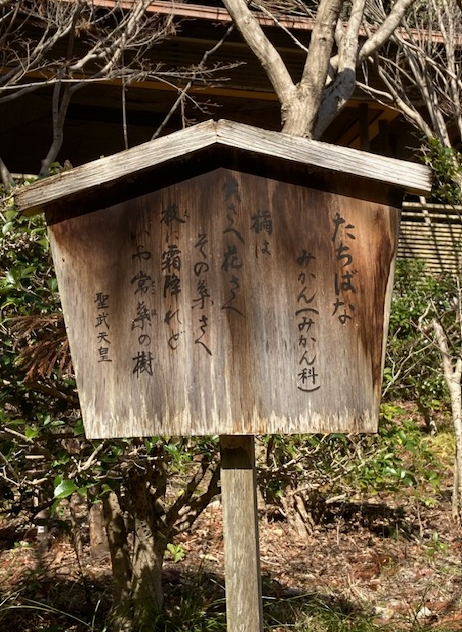 たちばな
みかん(みかん科)
橘は
実さへ花さへ
その葉さへ
枝に霜降れど
いや常葉の樹
聖武天皇